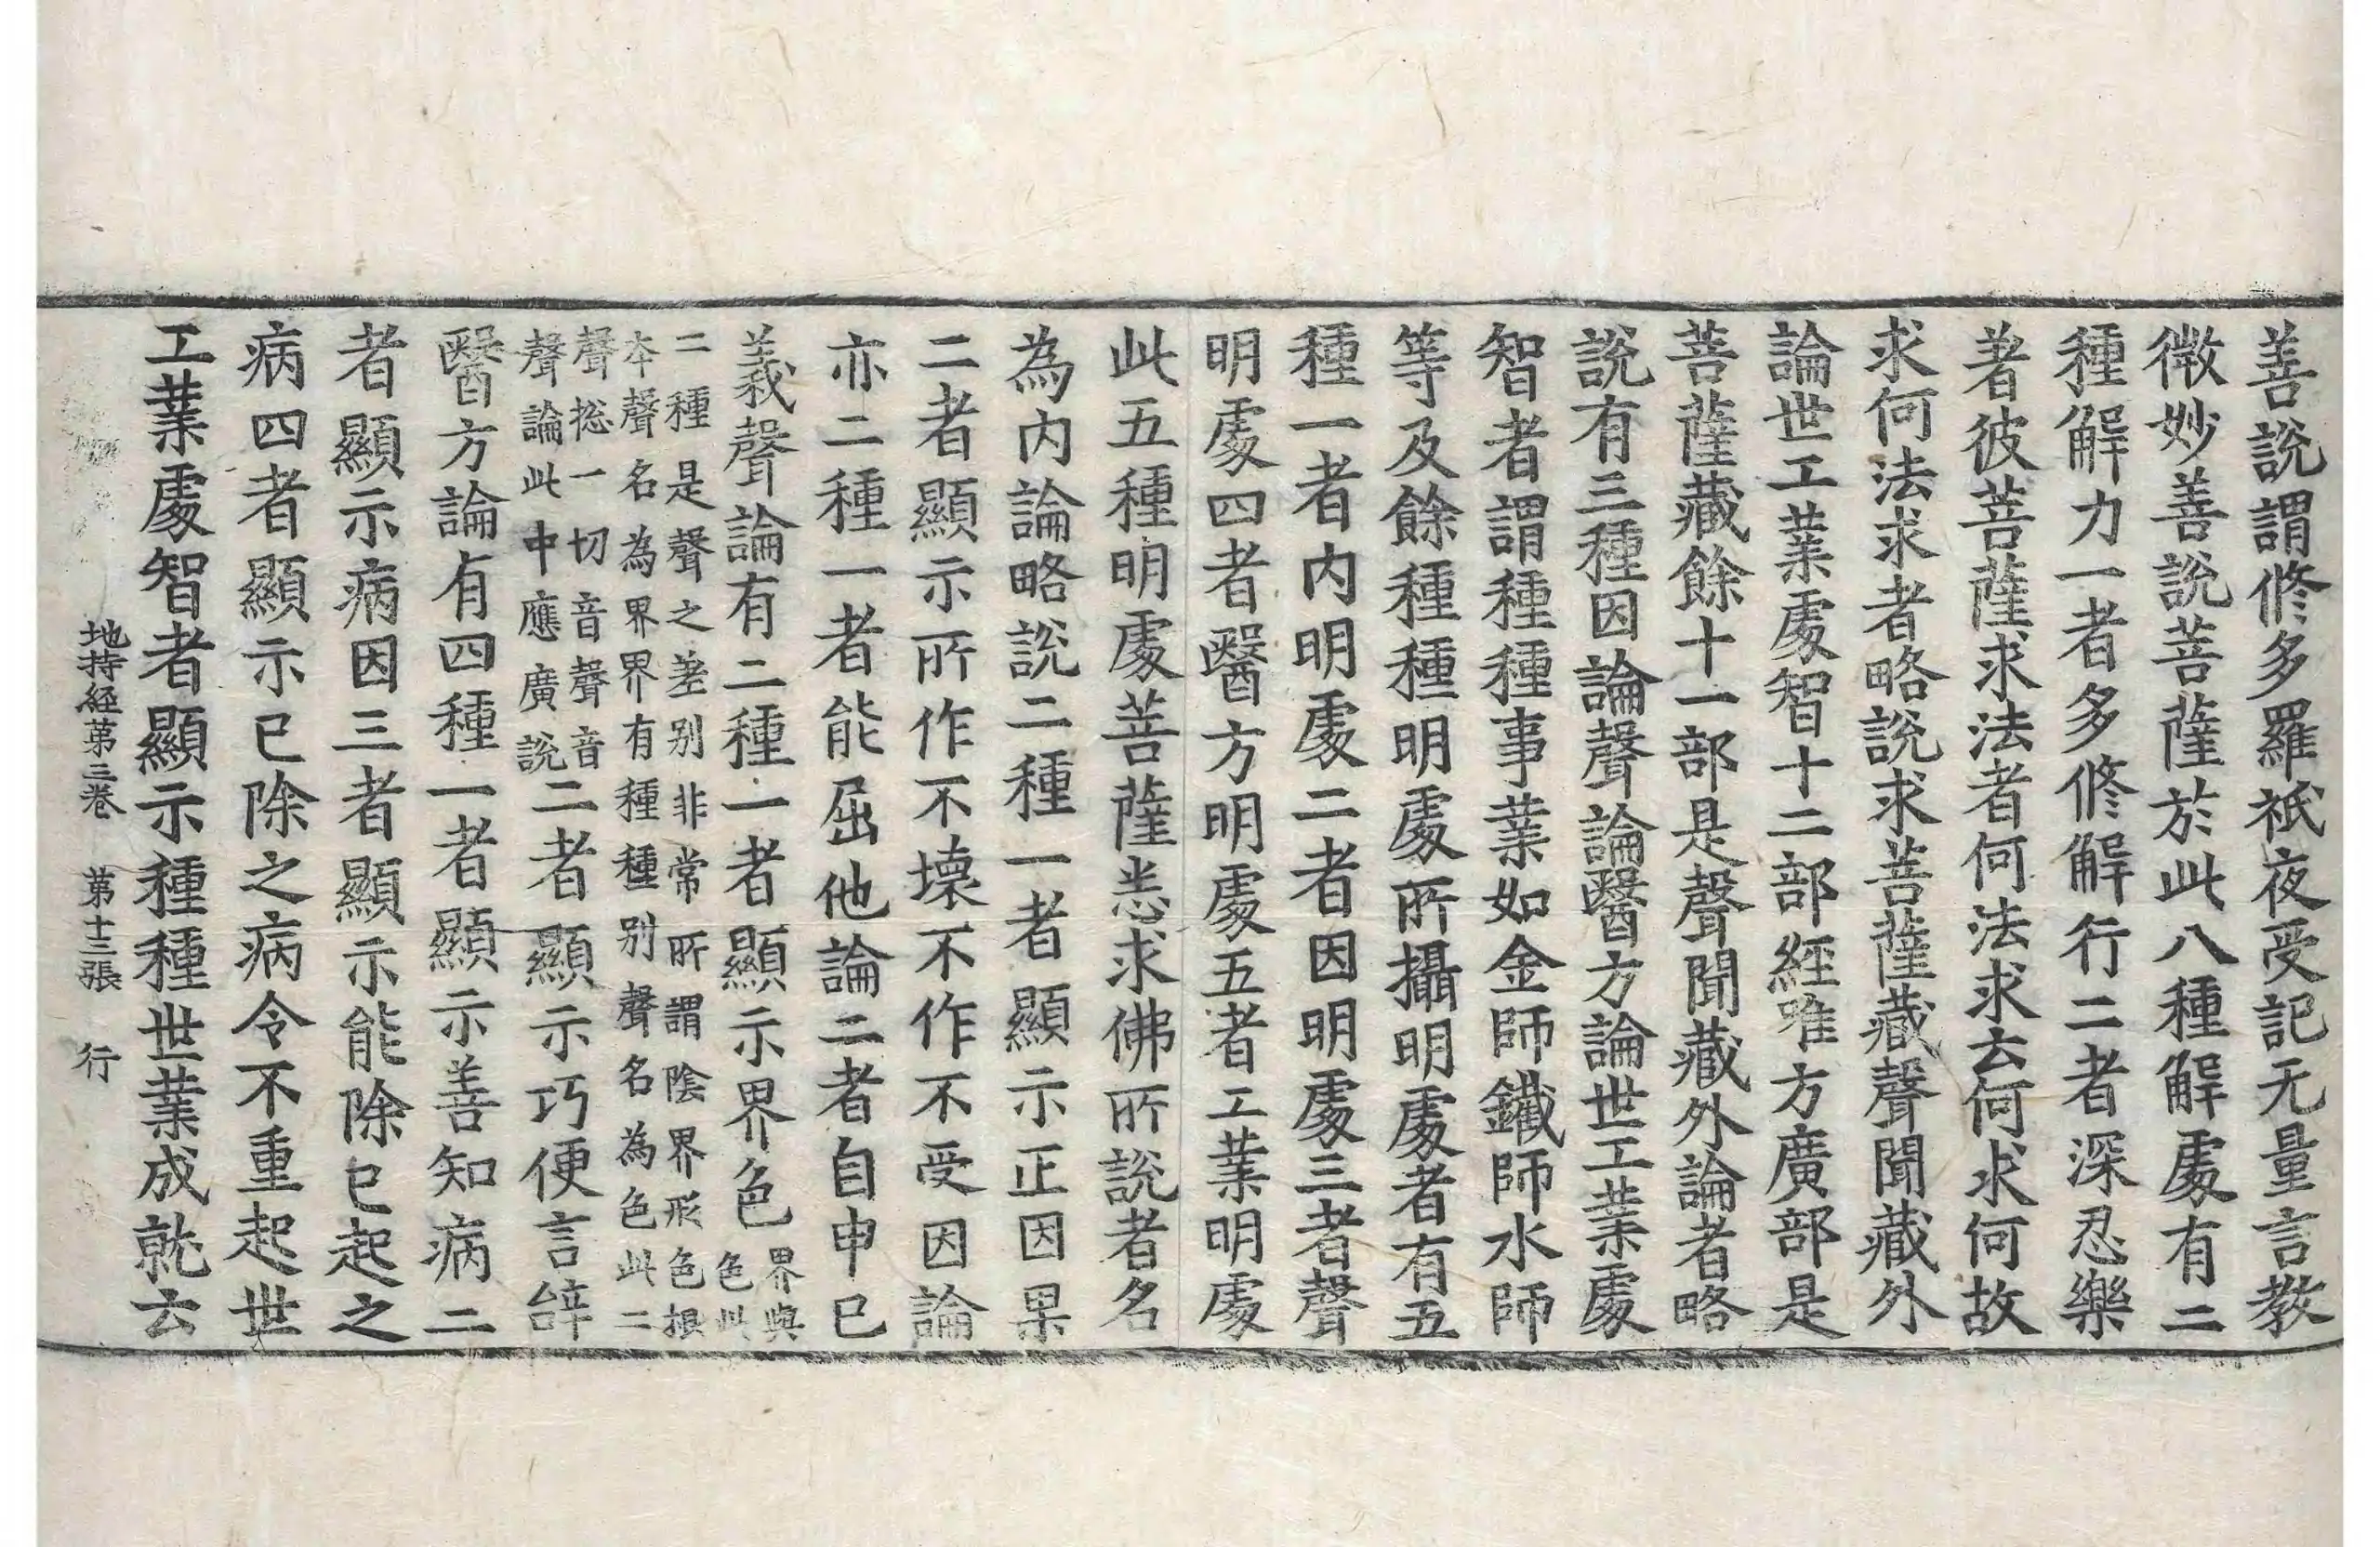 善說謂修多羅祇夜受記无量言教
微妙善說菩薩於此八種解處有二
種解力一者多修解行二者深忍樂
著彼菩薩求法者何法求云何求何故
求何法求者略說求菩薩藏聲聞藏外
論世工業處智十二部經唯方廣部是
菩薩藏餘十一部是聲聞藏外論者略
說有三種因論聲論醫方論世工業處
智者謂種種事業如金師鐵師水師
等及餘種種明處所攝明處者有五
種一者內明處二者因明處三者聲
明處四者醫方明處五者工業明處
此五種明處菩薩悉求佛所說者名
為內論略說二種一者顯示正因果
二者顯示所作不壞不作不受因論
亦二種一者能屈他論二者自申已
義聲論有二種一者顯示界色界與色此
二種是聲之差別非常所謂陰界形色根
本聲名為界界有種種別聲名為色此二
聲捴一切音聲音聲論此中應廣說二者顯示巧便言辝
醫方論有四種一者顯示善知病二
者顯示病因三者顯示能除已起之
病四者顯示已除之病令不重起世
工業處智者顯示種種世業成就云
地持經第三卷 第十三張 行